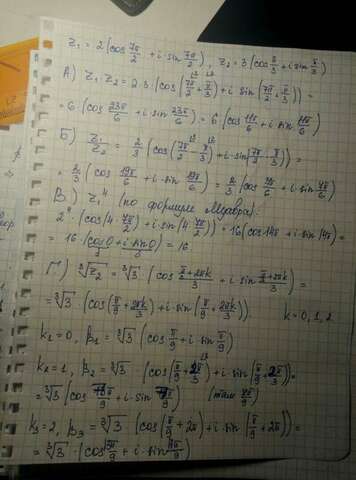 z₁ = 2 (cos 7π/2 + i·sin 7π/2), z₂ = 3 (cos π/3 + i sin π/3)
А) z₁·z₂ = 2·3·(cos(7π/2 + π/3) + i sin(7π/2 + π/3)) =
= 6·(cos 23π/6 + i sin 23π/6) = 6 (cos 11π/6 + i sin 11π/6)
Б) z₁/z₂ = 2/3 (cos(7π/2 - π/3) + i·sin(7π/2 - π/3)) =
= 2/3 (cos 19π/6 + i·sin 19π/6) = 2/3 (cos 7π/6 + i sin 7π/6)
В) z₁⁴ (по формуле Муавра):
2⁴·(cos(4·7π/2) + i sin(4·7π/2)) = 16(cos 14π + i sin 14π) =
= 16 (cos 0 + i sin 0) = 16
Г) ∛z₂ = ∛3·(cos (π/3+2πk)/3 + i sin (π/3+2πk)/3) =
= ∛3·(cos(π/9 + 2πk/3) + i·sin(π/9 + 2πk/3)). k = 0, 1, 2
k₁ = 0, β₁ = ∛3 (cos π/9 + i sin π/9)
k₂ = 1, β₂ = ∛3 (cos(π/9 + 2π/3) + i sin(π/9 + 2π/3)) =
= ∛3 (cos 7π/9 + i·sin 7π/9) (там 7π/9)
k₃ = 2, β₃ = ∛3·(cos(π/9 + 2π) + i·sin(π/9 + 2π)) =
= ∛3·(cos